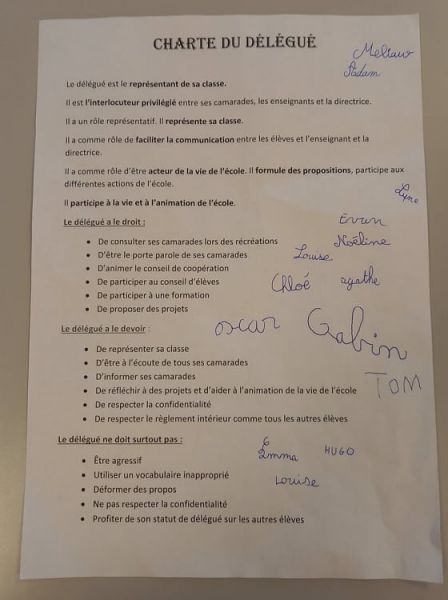 CHARTE DU DÉLÉGUÉ
Le délégué est le représentant de sa classe.
Il est l'interlocuteur privilégié entre ses camarades, les enseignants et la directrice.
Il a un rôle représentatif. Il représente sa classe.
Il a comme rôle de faciliter la communication entre les élèves et l'enseignant et la
directrice.
Il a comme rôle d'être acteur de la vie de l'école. Il formule des propositions, participe aux
différentes actions de l'école.
Lyne
Il participe à la vie et à l'animation de l'école.
Le délégué a le droit :
• De consulter ses camarades lors des récréations Noëline
• D'être le porte parole de ses camarades Louise
• D'animer le conseil de coopération
• De participer au conseil d'élèves Chloé agathe
• De participer à une formation
• De proposer des projets
oscar Gabin
Le délégué a le devoir :
• De représenter sa classe
• D'être à l'écoute de tous ses camarades
• D'informer ses camarades
• De réfléchir à des projets et d'aider à l'animation de la vie de l'école TOM
• De respecter la confidentialité
• De respecter le règlement intérieur comme tous les autres élèves
Le délégué ne doit surtout pas :
• Être agressif Emma HUGO
• Utiliser un vocabulaire inapproprié Louise
• Déformer des propos
• Ne pas respecter la confidentialité
• Profiter de son statut de délégué sur les autres élèves